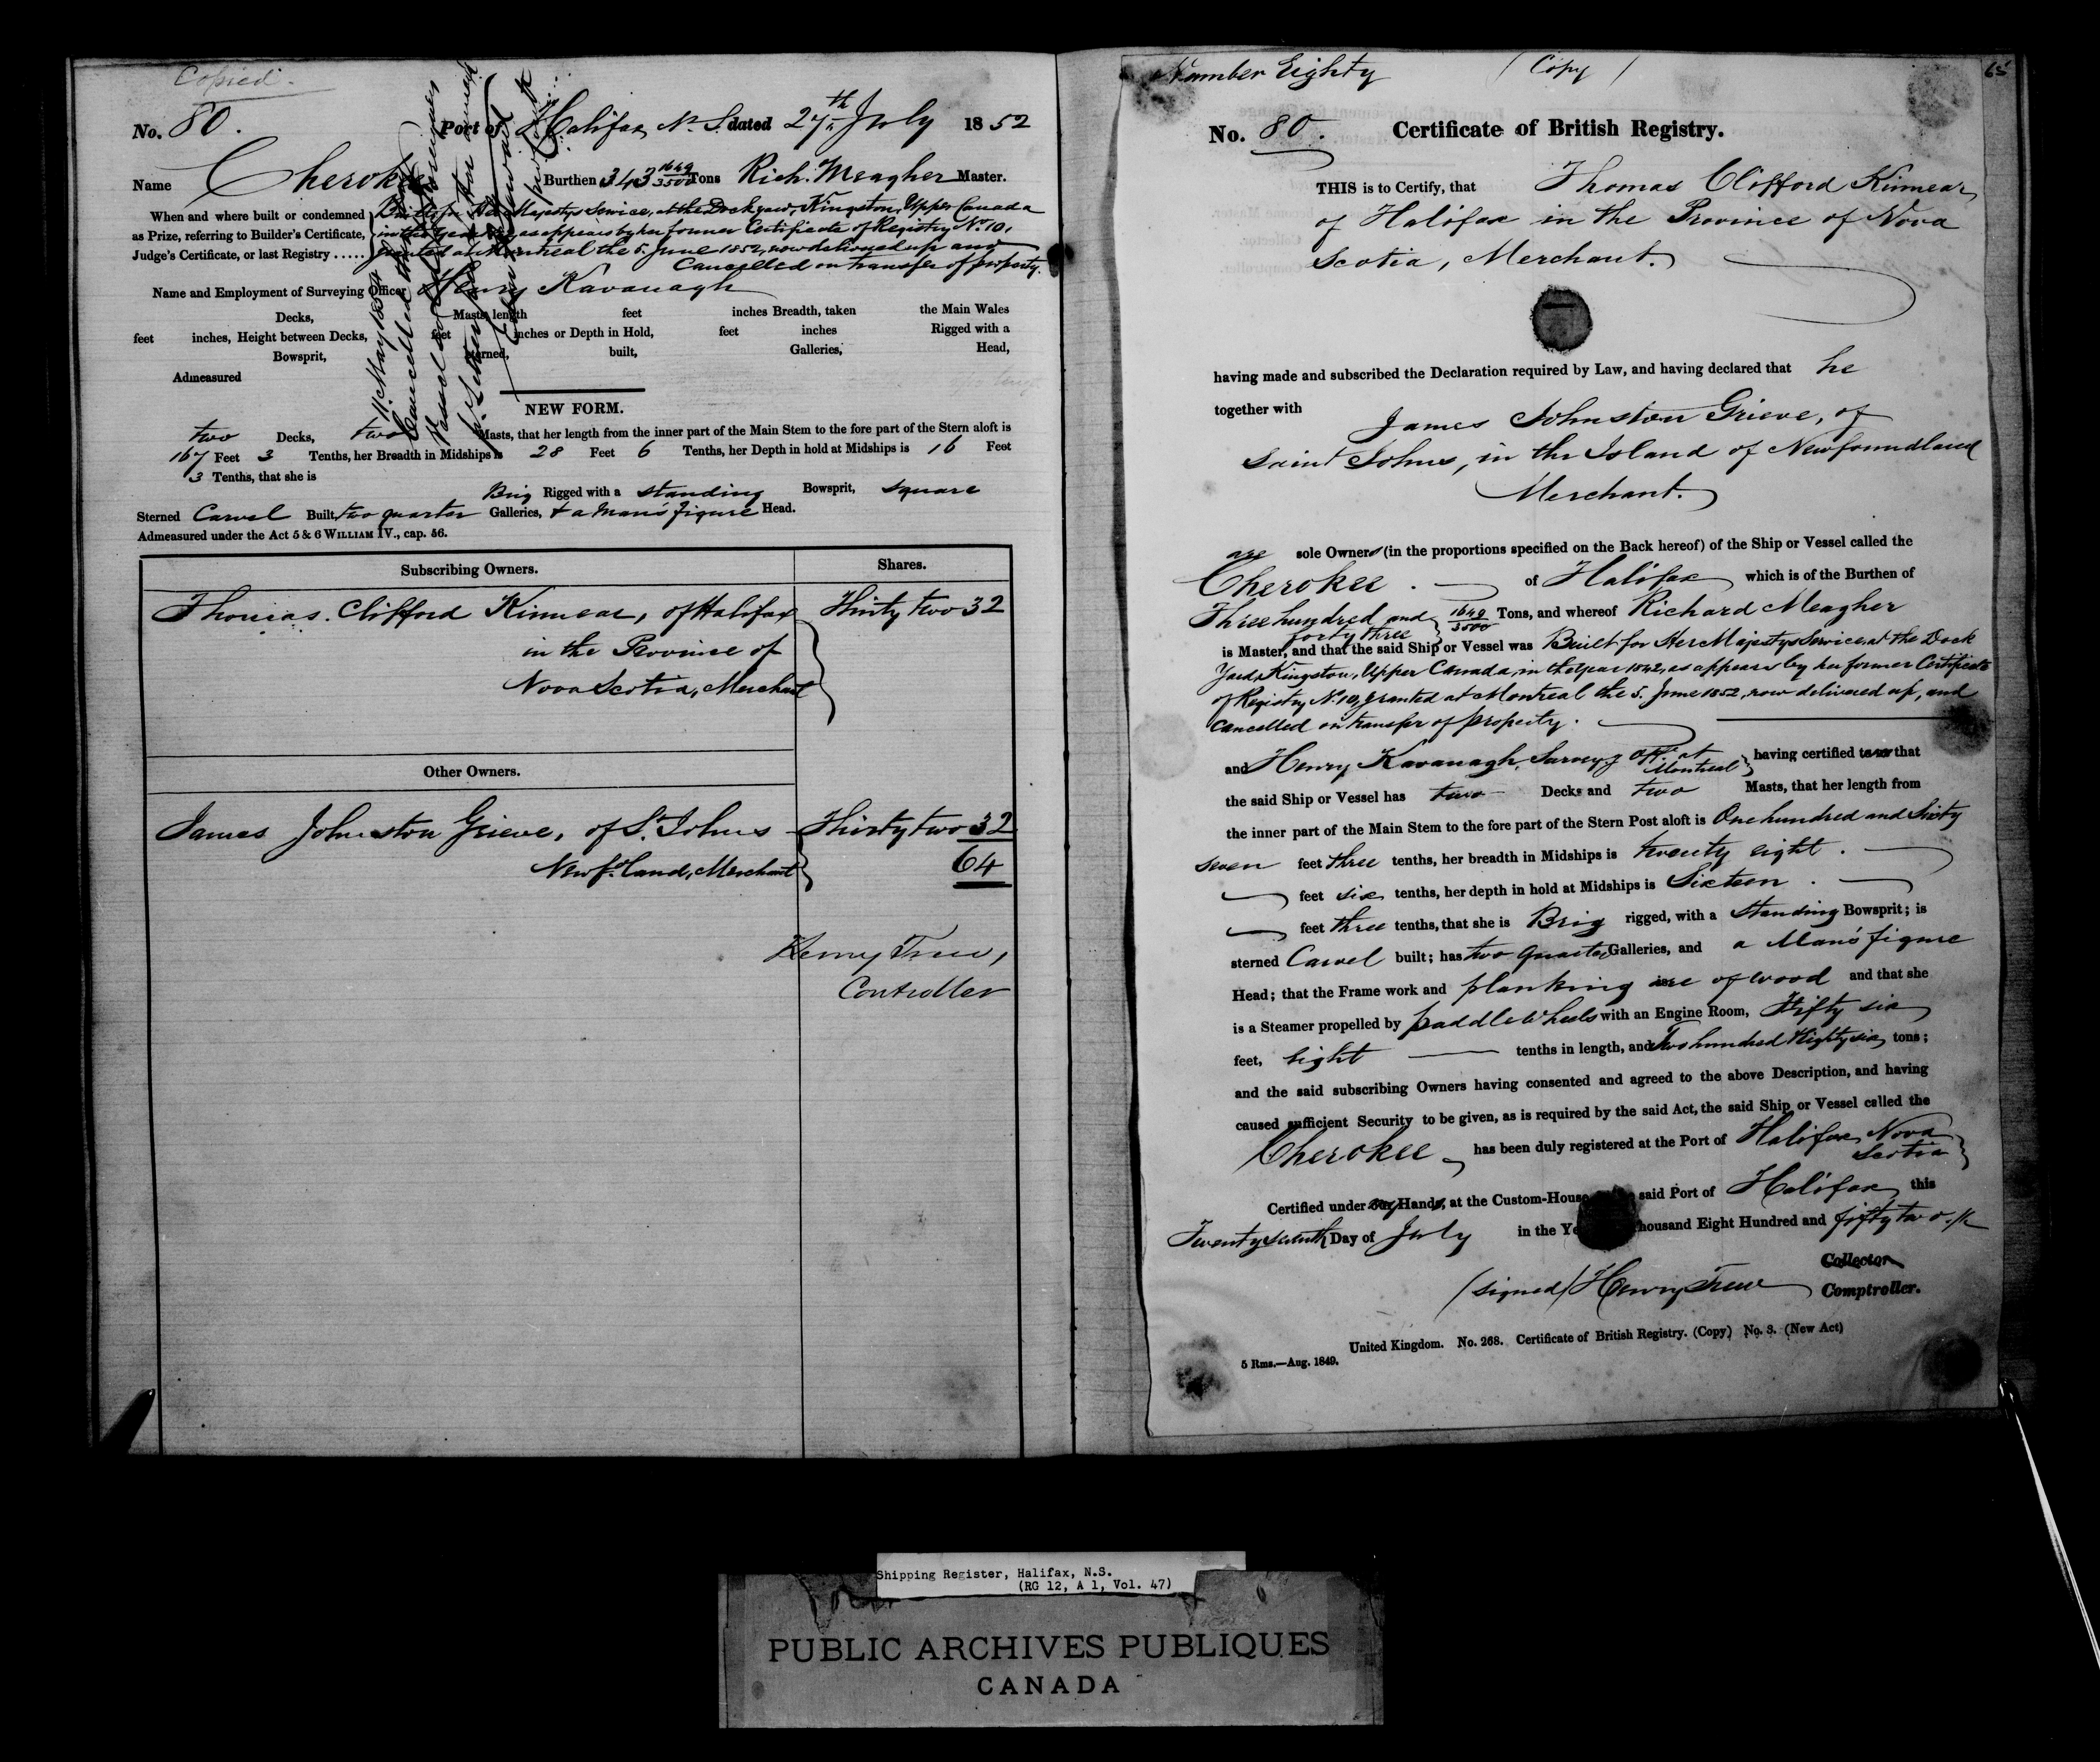 Copied
No. 80. Port of Halifax N. S. dated 27th July 1852
Name Cherokee Burthen 343 1649/3500 Tons Rich. Meagher Master.
When and where built or condemned
as Prize, referring to Builder's Certificate,
Judge's Certificate, or last Registry .....
Built for Her Majestys Service, at the Dockyard, Kingston, Upper Canada
in the year as appears by her former Certificate of Registry No. 10,
granted at Montreal the 5. June 1852, now delivered up and
Cancelled on transfer of property.
Name and Employment of Surveying Officer Henry Kavanagh
Decks, Masts, length feet inches Breadth, taken the Main Wales
feet inches, Height between Decks, feet inches or Depth in Hold, feet inches Rigged with a
Bowsprit, sterned, built, Galleries, Head,
Admeasured
11. May 1854
Cancelled
Vessel
pr. Letter
NEW FORM.
two Decks, two Masts, that her length from the inner part of the Main Stem to the fore part of the Stern aloft is
167 Feet 3 Tenths, her Breadth in Midships is 28 Feet 6 Tenths, her Depth in hold at Midships is 16 Feet
3 Tenths, that she is
Brig Rigged with a standing Bowsprit, square
Sterned Carvel Built, two quarter Galleries, & a Man's figure Head.
Admeasured under the Act 5 & 6 WILLIAM IV., cap. 56.
Subscribing Owners. Shares.
Thomas Clifford Kinnear, of Halifax Thirty two 32
in the Province of
Nova Scotia, Merchant
Other Owners.
James Johnston Grieve, of St. Johns Thirty two 32
Newfd.land, Merchant 64
Henry Trew,
Controller
Number Eighty (Copy) 65
No. 80. Certificate of British Registry.
THIS is to Certify, that Thomas Clifford Kinnear
of Halifax in the Province of Nova
Scotia, Merchant.
having made and subscribed the Declaration required by Law, and having declared that he
together with James Johnston Grieve, of
Saint Johns, in the Island of Newfoundland
Merchant.
are sole Owners (in the proportions specified on the Back hereof) of the Ship or Vessel called the
Cherokee of Halifax which is of the Burthen of
Three hundred and forty three 1649/3500 Tons, and whereof Richard Meagher
is Master, and that the said Ship or Vessel was Built for Her Majestys Service, at the Dock
Yard, Kingston, Upper Canada, in the year 1842, as appears by her former Certificate
of Registry No. 10, granted at Montreal the 5. June 1852, now delivered up, and
Cancelled on transfer of property.
and Henry Kavanagh, Surveyg Offr. at Montreal having certified to us that
the said Ship or Vessel has two Decks and two Masts, that her length from
the inner part of the Main Stem to the fore part of the Stern Post aloft is One hundred and Sixty
seven feet three tenths, her breadth in Midships is twenty eight.
feet six tenths, her depth in hold at Midships is Sixteen.
feet three tenths, that she is Brig rigged, with a Standing Bowsprit; is
sterned Carvel built; has two quarter Galleries, and a Man's figure
Head; that the Frame work and planking are of wood and that she
is a Steamer propelled by paddle wheels with an Engine Room, Fifty six
feet, eight tenths in length, and Two hundred & Eighty six tons;
and the said subscribing Owners having consented and agreed to the above Description, and having
caused sufficient Security to be given, as is required by the said Act, the said Ship or Vessel called the
Cherokee has been duly registered at the Port of Halifax, Nova
Scotia
Certified under my Hand, at the Custom-House said Port of Halifax, this
Twenty seventh Day of July in the housand Eight Hundred and fifty two.
Collector
(signed) Henry Trew Comptroller.
United Kingdom. No. 268. Certificate of British Registry. (Copy) No. 3. (New Act)
5 Rms.—Aug. 1849.
Shipping Register, Halifax, N.S.
(RG 12, A 1, Vol. 47)
PUBLIC ARCHIVES PUBLIQUES
CANADA